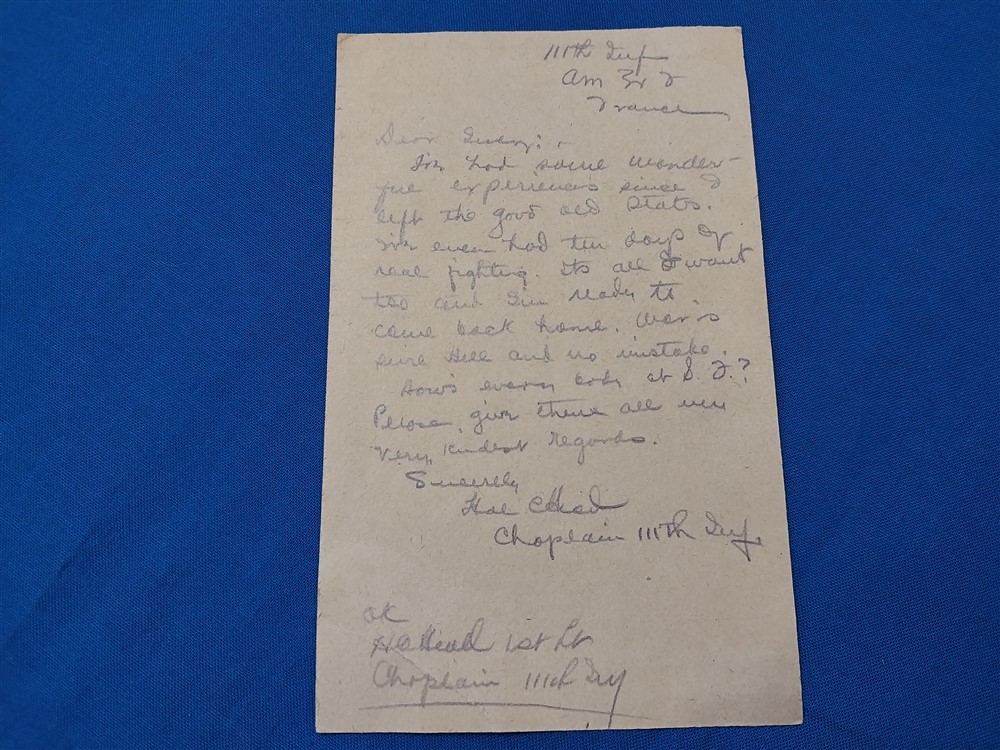 111th Inf
Am Ex F
France
Dear
I've had some wonder-
ful experiences since I
left the good old States.
I've even had ten days of
real fighting. Its all I want
too and I'm ready to
come back home. War is
sure Hell and no mistake.
How's every body at S. F.?
Please give them all my
very kindest regards.
Sincerely
Chaplain 111th Inf.
OK
1st Lt
Chaplain 111th Inf